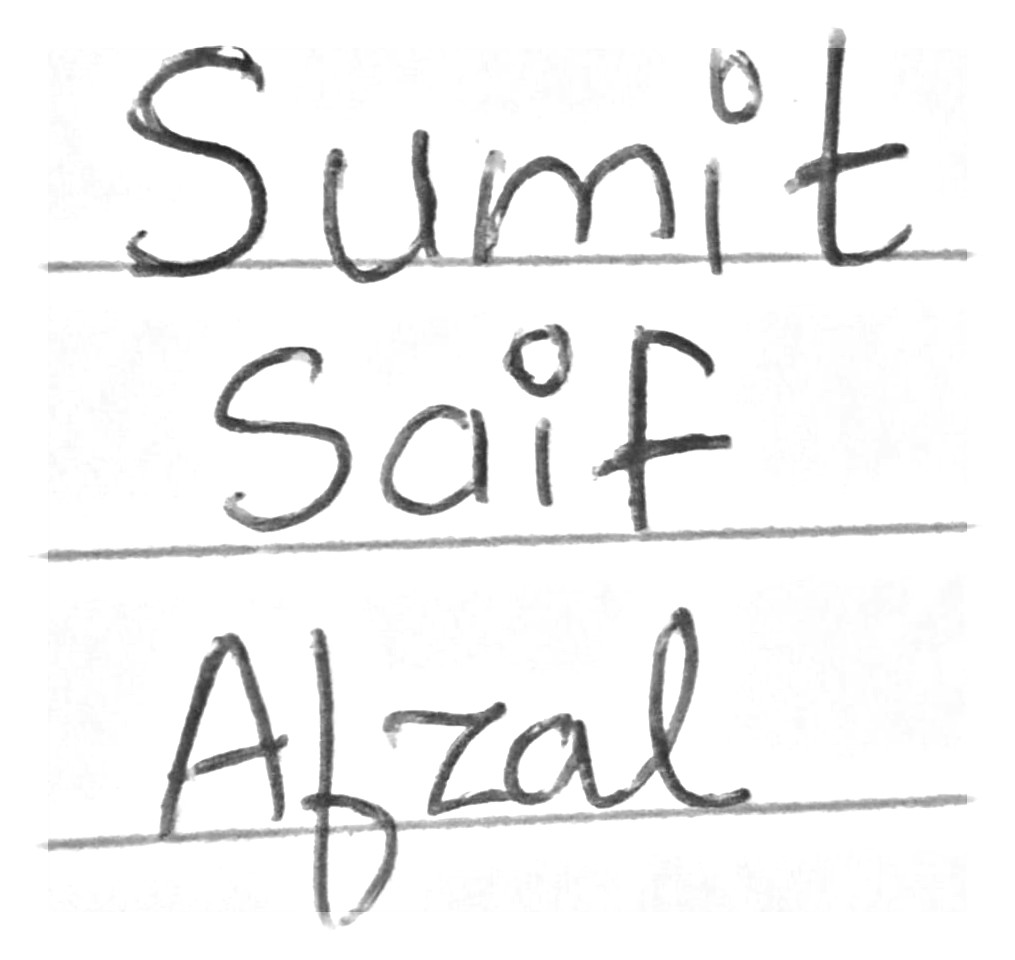 Sumit
Saif
Afzal